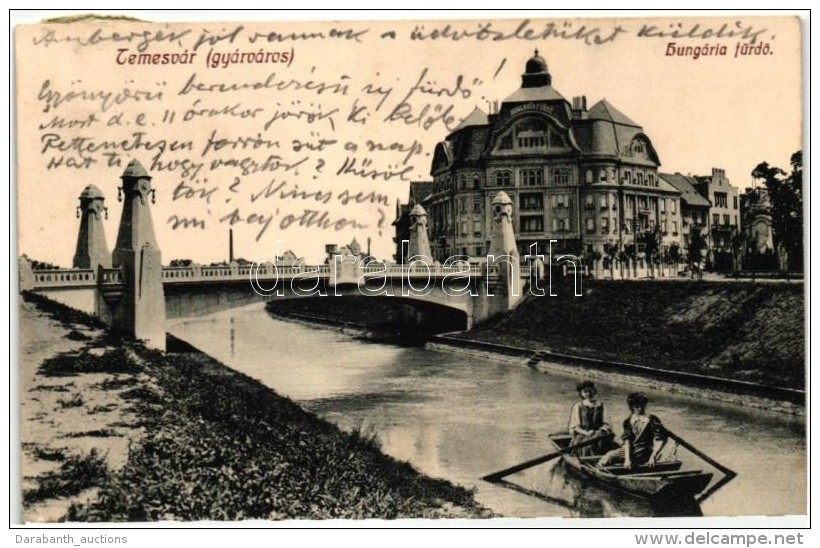 Ambergék jól vannak s üdvözletüket küldik.
Temesvár (gyárváros)
Hungária fürdő.
Gyönyörű berendezésű új fürdő!
Most d. e. 11 órakor jövök ki belőle
Rettenetesen forrón süt a nap.
Hát ti hogy vagytok?
tök? Nincs sem
mi baj otthon?
HUNGÁRIA FÜRDŐ
darabanth.com
Darabanth_auctions
http://www.delcampe.net